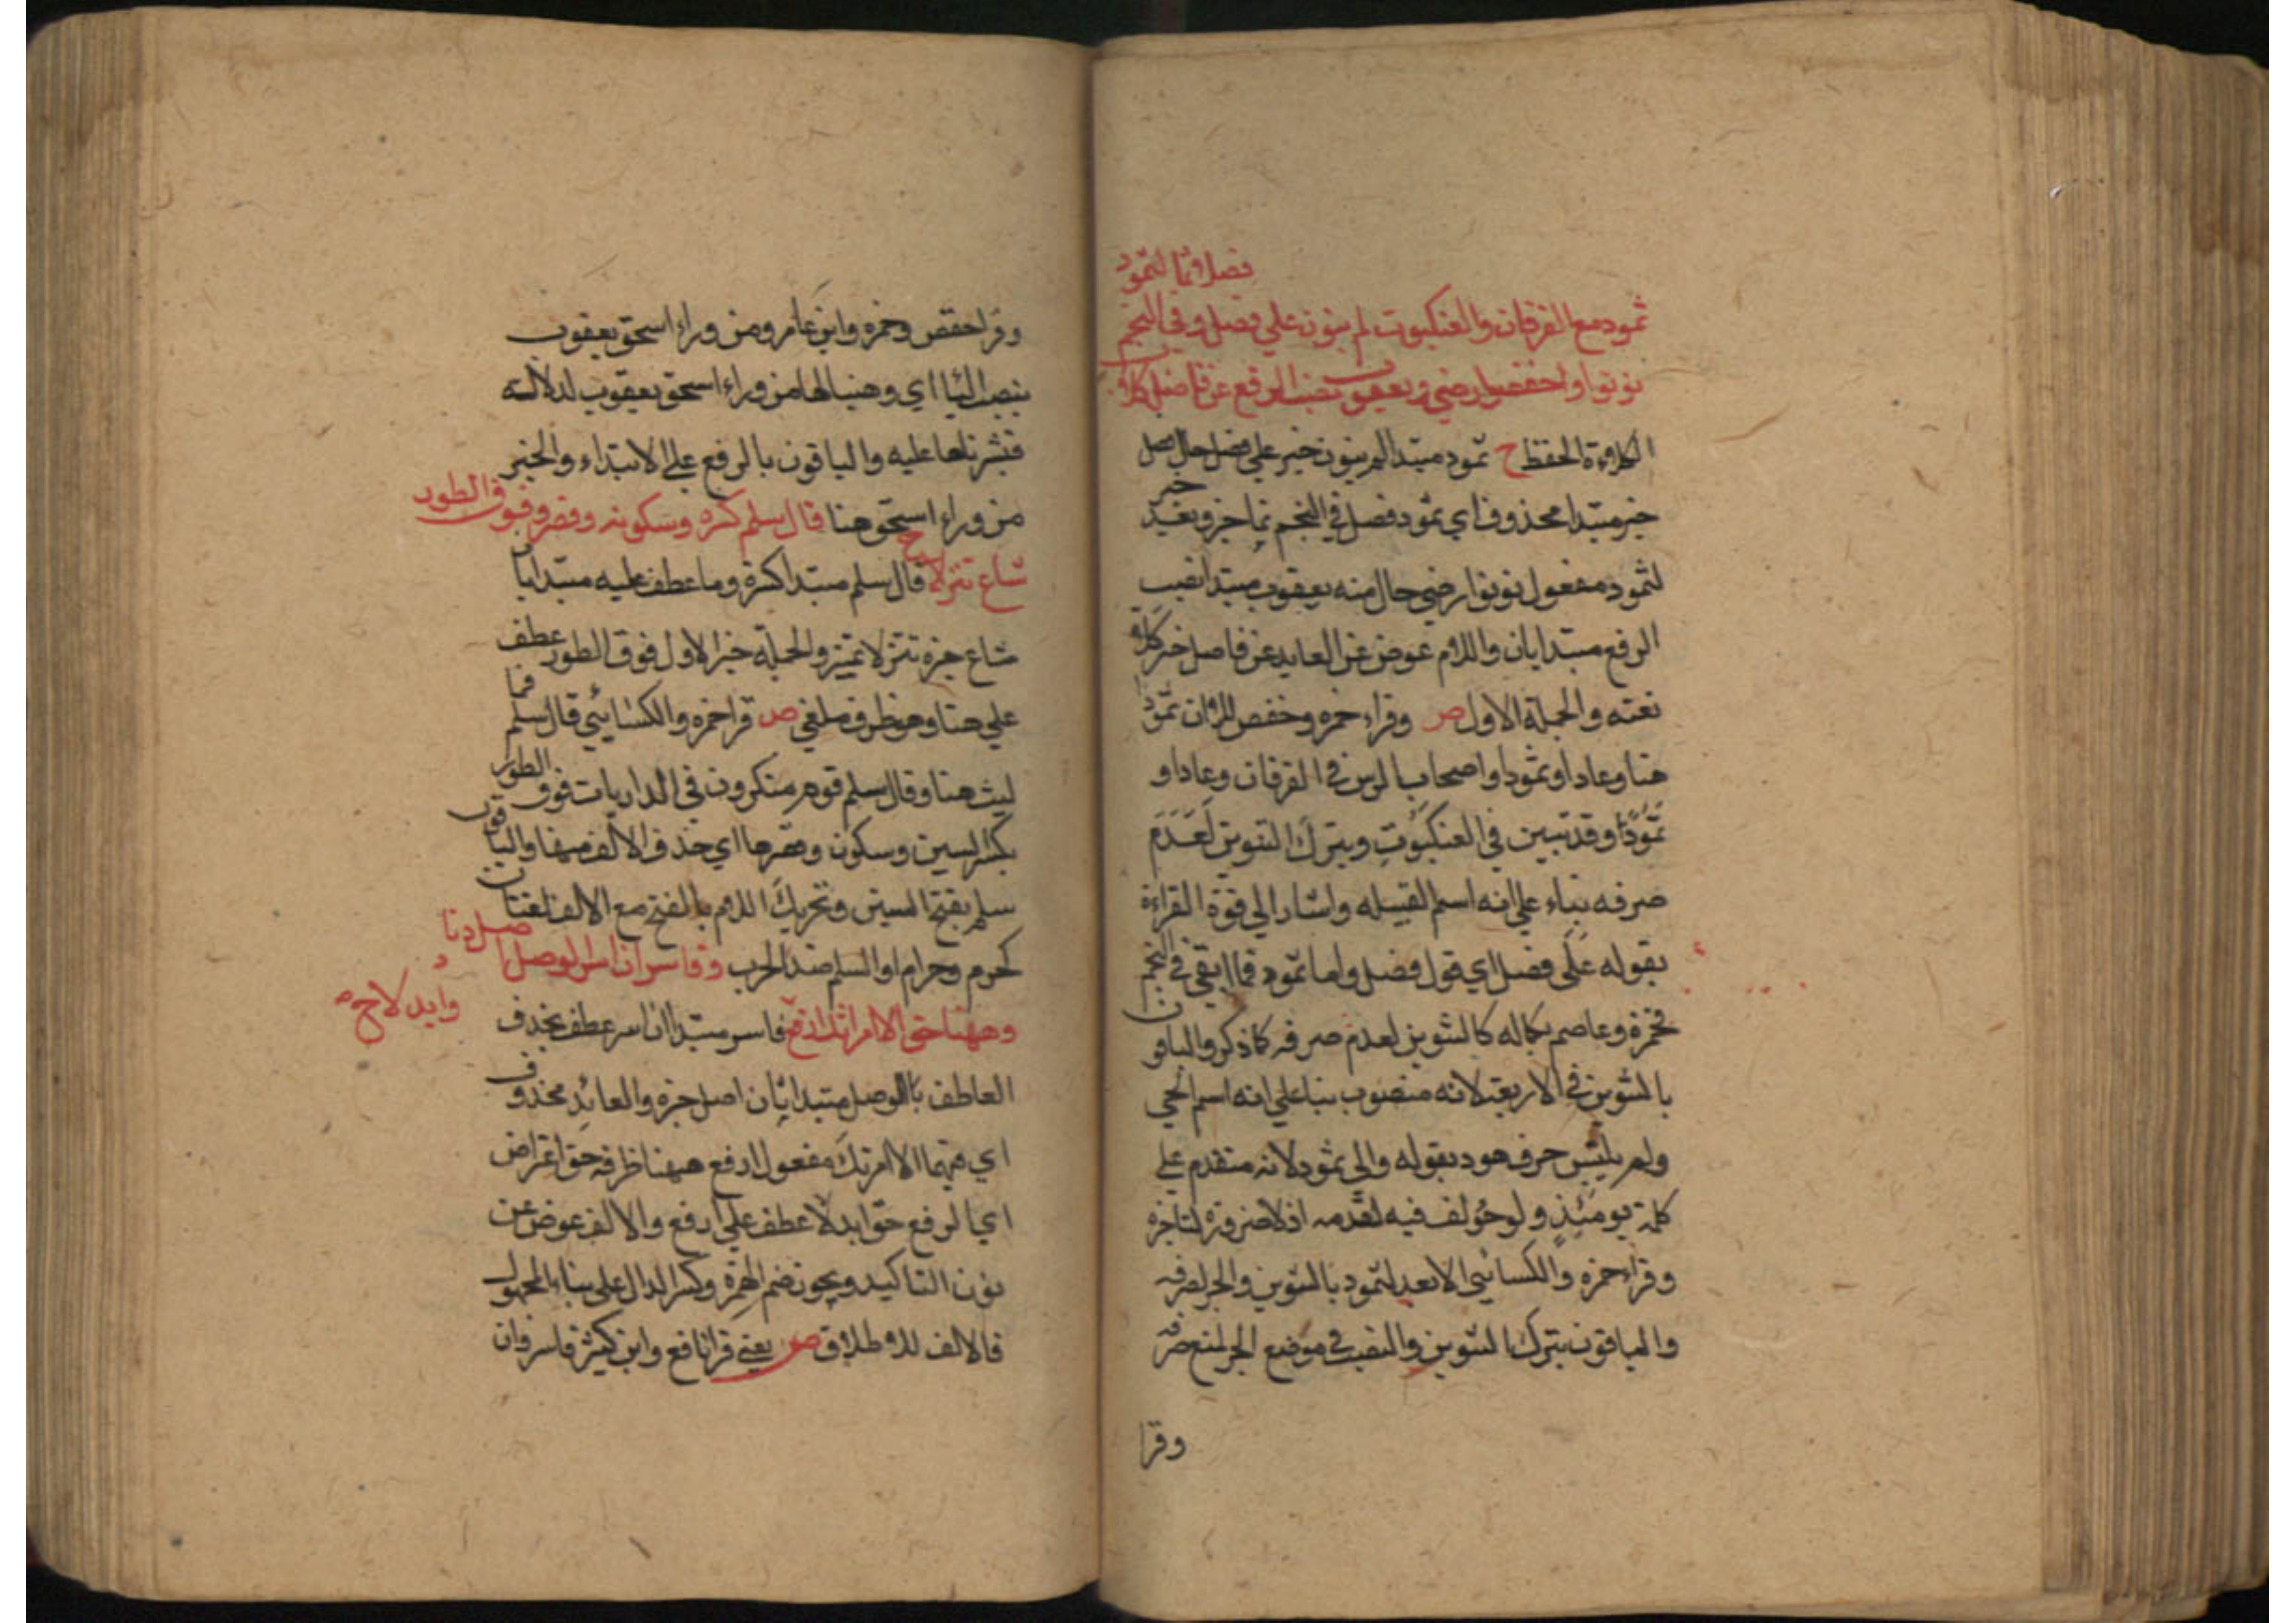 فصل وثما لثمود
ثمود مع الفرقان والعنكبوت لم ينون علي فصل وفي النجم
نونوا واخفضوا رضي ويعقوب نصب الرفع عن فاضل كلا
الكلاءة الحفظ ح ثمود مبتدا لم ينون خبر علي فصل حال فصل
خبر مبتدا محذوف اي ثمود فصل في النجم نما خبر وبعد
لثمود مفعول نونوا رضي حال منه يعقوب مبتدا نصب
الرفع مبتدا ثان واللام عوض عن العايد عن فاصل خبر كلاء
نعته والجملة الاول ص وقراء حمزه وحفص الا ان ثمود
هنا وعادا وثمودا واصحاب الرس في الفرقان وعادا و
ثمودا وقد تبين في العنكبوت ويترك التنوين لعدم
صرفه بناء علي انه اسم القبيله واشار الي قوة القراءة
بقوله علي فصل اي قول فصل واما ثمود فما ابقي في النجم
فحمزة وعاصم بكماله كالتنوين لعدم صرفه كما ذكر والباقون
بالتنوين في الاربعة لانه منصوب بنا علي انه اسم الحي
ولم يلتبس حرف هود بقوله والي ثمود لانه متقدم علي
كلمة يومئذ ولو خولف فيه لقدمه اذ لا ضرورة لتاخره
وقراء حمزه والكسائي الا بعد لثمود بالتنوين والجر لصرفه
والباقون بترك التنوين والنصب في موضع الجر لمنع صرفه
وقرا
وقرا حفص وحمزه وابن عامر ومن وراء اسحق يعقوب
بنصب البا اي وهبنا لها من وراء اسحق يعقوب لدلالة
فبشرناها عليه والباقون بالرفع علي الابتداء والخبر
من وراء اسحق هنا قال سلم كسره وسكونه وقصر وفوق الطور
شاع تنزلا ح قال سلم مبتدا كسره وما عطف عليه مبتدا ثان
شاع خبره تنزلا تمييز والجملة خبر الاول فوق الطور عطف
علي هنا وهو ظرف ملغي ص قرا حمزه والكسائي قال سلم فما
لبث هنا وقال سلم قوم منكرون في الذاريات فوق الطور
بكسر السين وسكون وقصرها اي حذف الالف منها والباقون
سلم بفتح السين وتحريك اللام بالفتح مع الالف لغتان
كحرم وحرام او السلم ضد الحرب وفاسر ان اسر الوصل اصل دنا
وههنا حق الا امراتك ارفع وابدلا ح فاسر مبتدا ان اسر عطف بحذف
العاطف بالوصل مبتدا ثان اصل خبره والعائد محذوف
اي فيهما الا امرتك مفعول ارفع ههنا ظرفه حق اعتراض
اي الرفع حق ابدلا عطف علي ارفع والالف عوض عن
نون التاكيد ويجوز ضم الهمزة وكسر الدال علي بناء المجهول
فالالف للاطلاق ص يعني قرا نافع وابن كثير فاسر وان